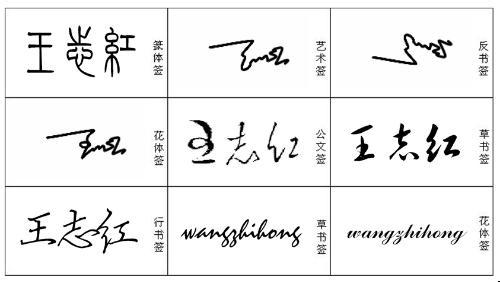 王志紅
篆体签
艺术签
反书签
花体签
王志红
公文签
王志红
草书签
王志红
行书签
wangzhihong
草书签
wangzhihong
花体签